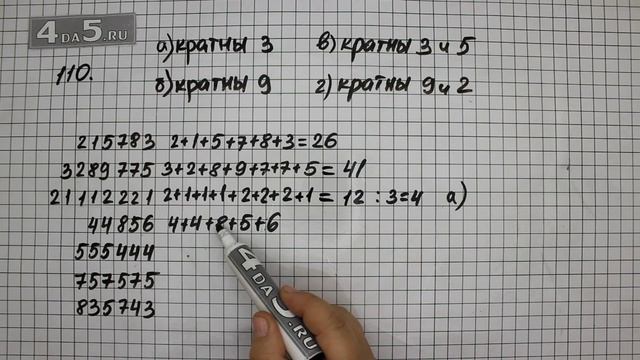 4DA5.RU
110.
а) кратны 3 в) кратны 3 и 5
б) кратны 9 г) кратны 9 и 2
215783 2+1+5+7+8+3=26
3289775 3+2+8+9+7+7+5=41
21112221 2+1+1+1+2+2+2+1=12 :3=4 а)
44856 4+4+8+5+6
555444
757575
835743
4DA5.RU